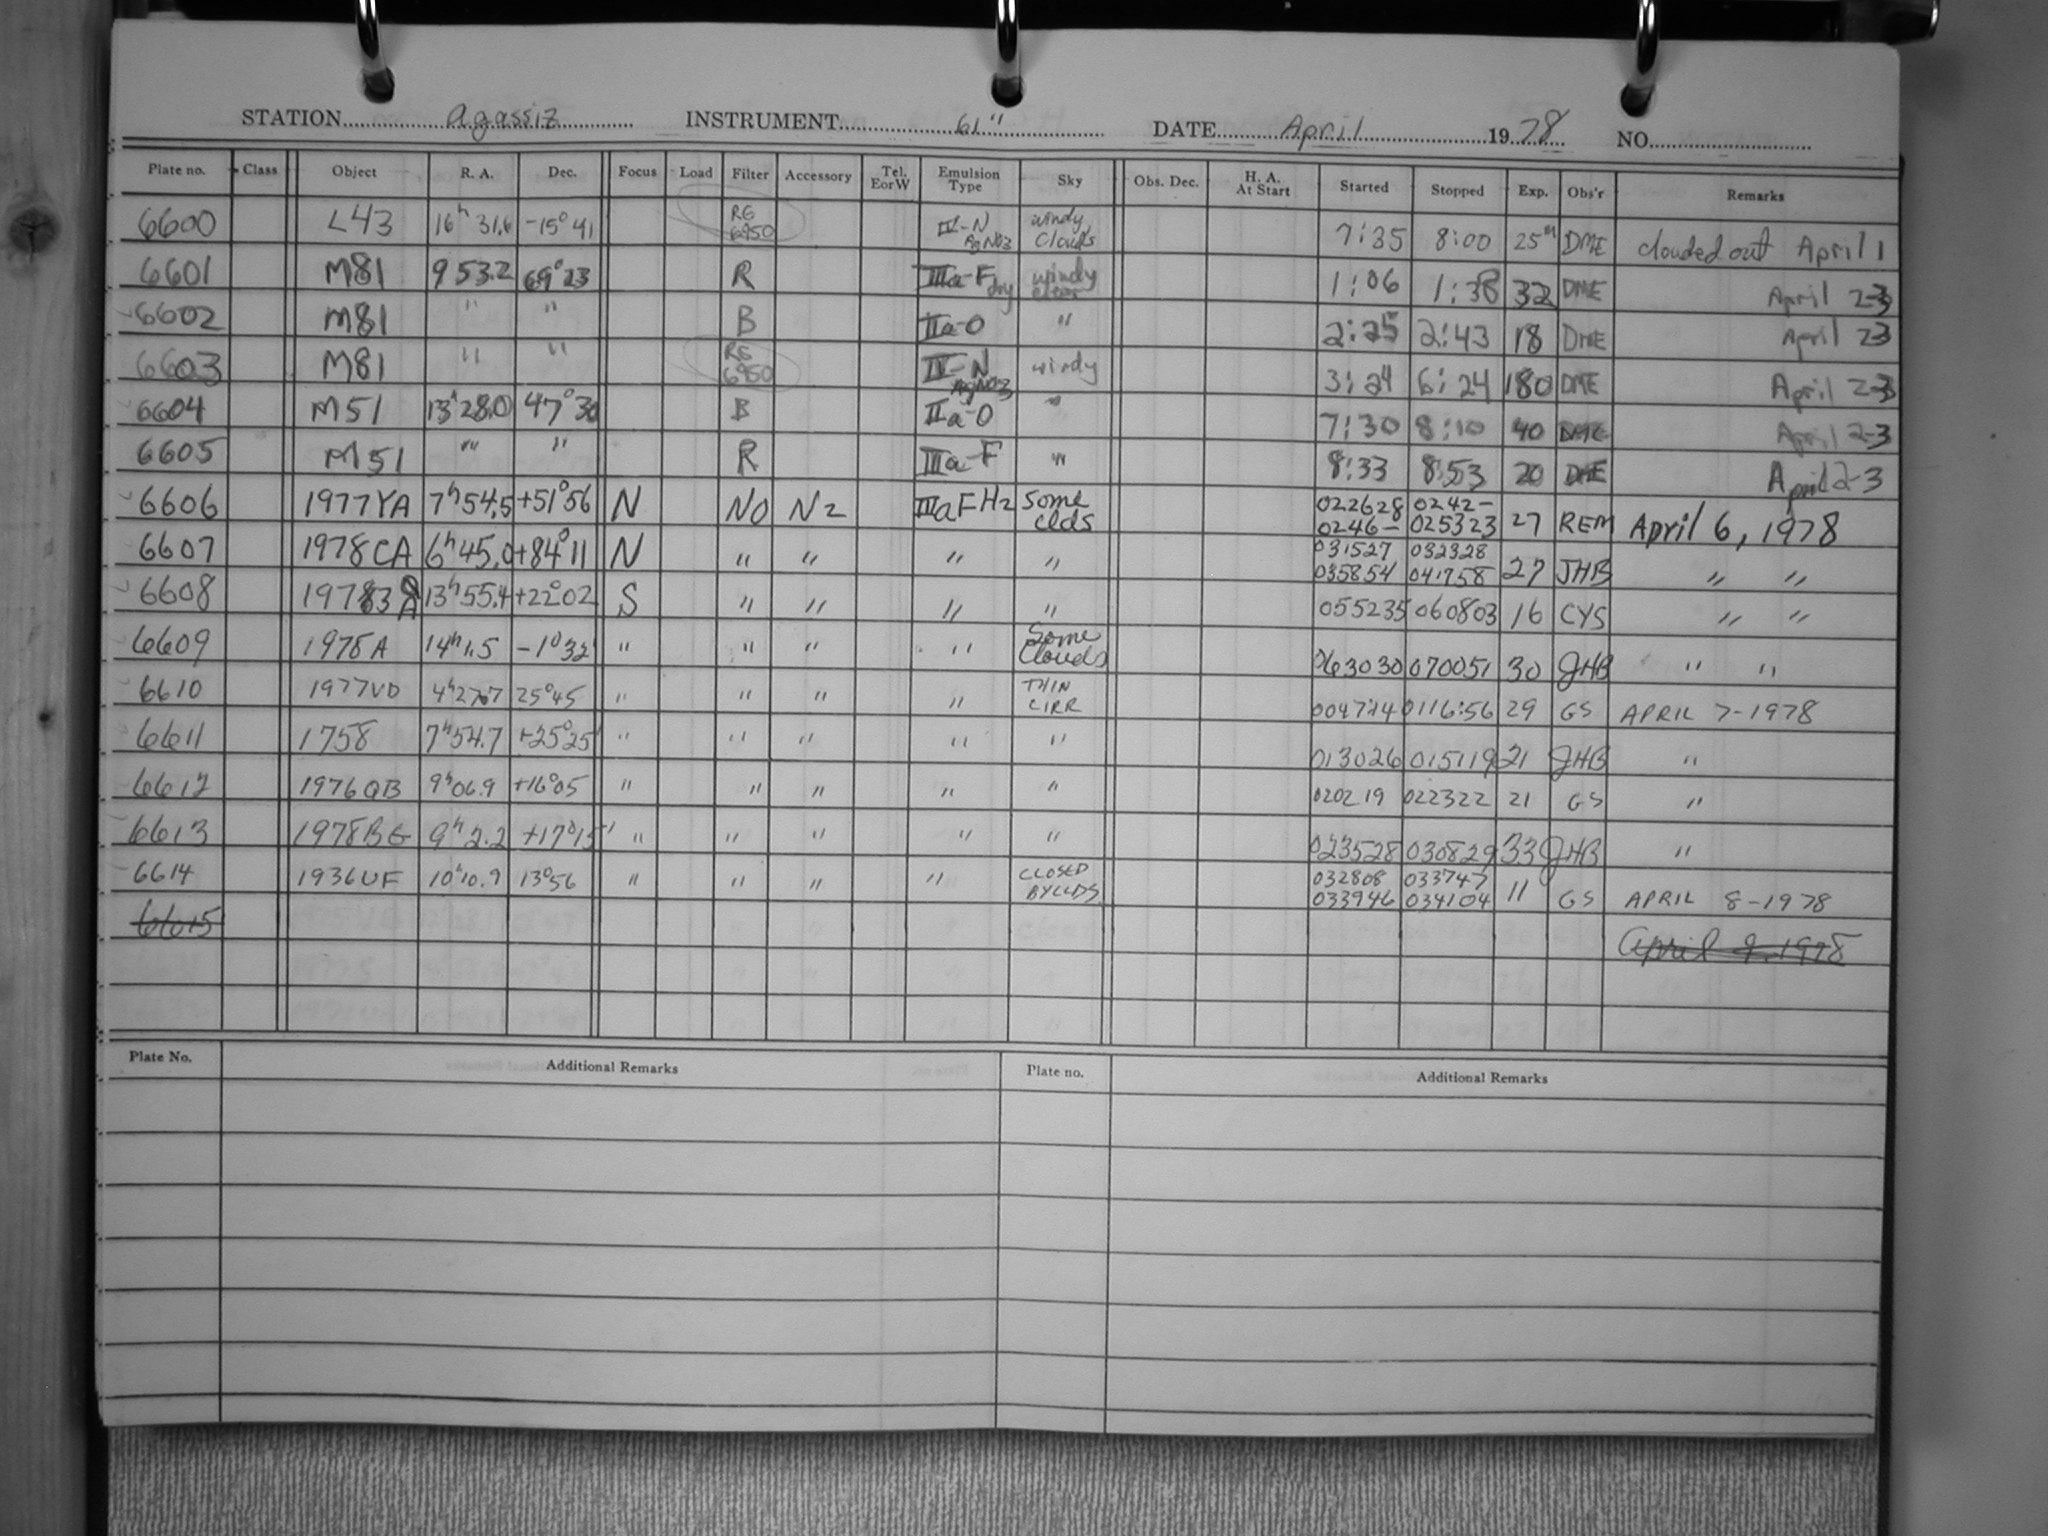 STATION Agassiz INSTRUMENT 61" DATE April 1978 NO.
Plate no. Class Object R. A. Dec. Focus Load Filter Accessory Tel. E or W Emulsion Type Sky Obs. Dec. H. A. At Start Started Stopped Exp. Obs'r Remarks
6600 L43 16h 31.6 -15° 41 RG 6950 IV-N AgNO3 windy clouds 7:35 8:00 25m DME clouded out April 1
6601 M81 9 53.2 69° 23 R IIIa-F dry windy clear 1:06 1:38 32 DME April 2-3
6602 M81 " " B IIa-O " 2:25 2:43 18 DME April 23
6603 M81 " " RG 6950 IV-N AgNO3 windy 3:24 6:24 180 DME April 2-3
6604 M51 13h 28.0 47° 30 B IIa-O " 7:30 8:10 40 DME April 2-3
6605 M51 " " R IIIa-F " 8:33 8:53 20 DME April 2-3
6606 1977YA 7h 54.5 +51° 56 N NO N2 IIIaF H2 Some clds 022628 0242-
0246- 025323 27 REM April 6, 1978
6607 1978CA 6h 45.0 +84° 11 N " " " " 031527 032328
035854 041758 27 JHB " "
6608 13h 55.4 +22° 02 S " " " " 055235 060803 16 CYS " "
6609 1978A 14h 1.5 -1° 32' " " " " Some Clouds 063030 070051 30 JHB " "
6610 1977VD 4h 27.7 25° 45 " " " " THIN CIRR 004724 0116:56 29 GS APRIL 7-1978
6611 1758 7h 54.7 +25° 25' " " " " " 013026 015119 21 JHB "
6612 1976QB 9h 06.9 +16° 05 " " " " " 020219 022322 21 GS "
6613 1978BG 9h 2.2 +17° 15' " " " " " 023528 030829 33 JHB "
6614 1936UF 10h 10.9 13° 56 " " " " CLOSED BY CLDS 032808 033747
033946 034104 11 GS APRIL 8-1978
6615 April 9, 1978
Plate No. Additional Remarks Plate no. Additional Remarks